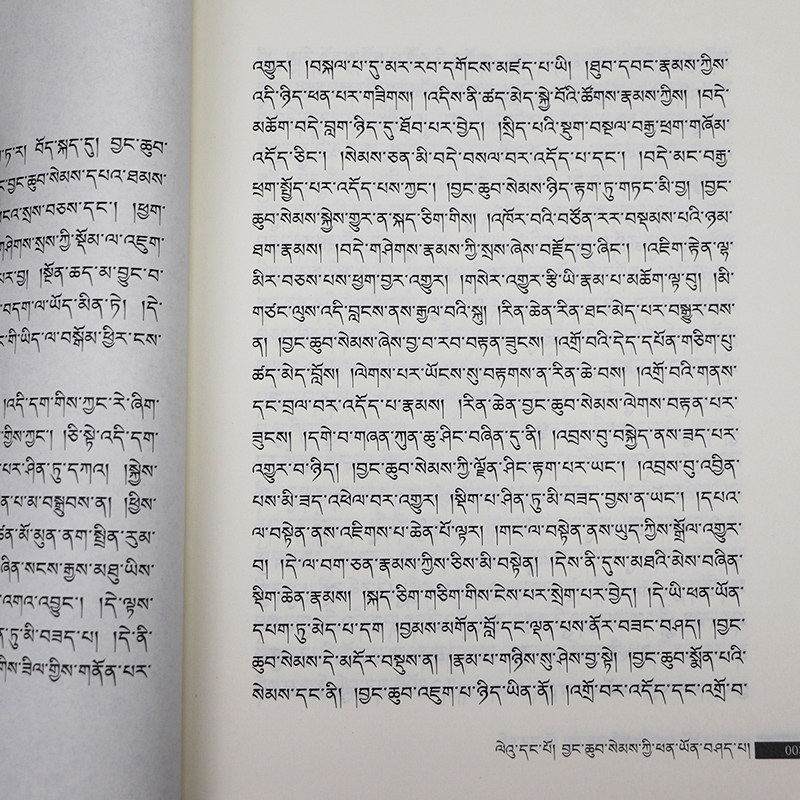 ཏ་ར། བོད་སྐད་དུ། བྱང་ཆུབ་
བྱང་ཆུབ་སེམས་དཔའ་ཐམས་
མངའ་སྲས་བཅས་དང༌། །ཕྱག་
གཤེགས་སྲས་ཀྱི་སྡོམ་ལ་འཇུག་
པར་བྱ། །སྔོན་ཆད་མ་བྱུང་བ་
བདག་ལ་ཡོད་མིན་ཏེ། །དེ་
གི་ཡིད་ལ་བསྒོམ་ཕྱིར་ངས་
།འདི་དག་གིས་ཀྱང་རེ་ཞིག་
གྱིས་ཀྱང༌། །ཅི་སྟེ་འདི་དག་
པར་ཤིན་ཏུ་དཀའ། །སྐྱེས་
ན་པ་མ་བསྒྲུབས་ན། །ཕྱིས་
མཚན་མོ་མུན་ནག་སྤྲིན་རུམ་
བཞིན་སངས་རྒྱས་མཐུ་ཡིས་
འགའ་འབྱུང༌། །དེ་ལྟས་
ཏུ་མི་བཟད་པ། །དེ་ནི་
གིས་ཟིལ་གྱིས་གནོན་པར་
འགྱུར། །བསྐལ་པ་དུ་མར་རབ་དགོངས་མཛད་པ་ཡི། །ཐུབ་དབང་རྣམས་ཀྱིས་
འདི་ཉིད་ཕན་པར་གཟིགས། །འདིས་ནི་ཚད་མེད་སྐྱེ་བོའི་ཚོགས་རྣམས་ཀྱིས། །བདེ་
མཆོག་བདེ་བླག་ཉིད་དུ་ཐོབ་པར་བྱེད། །སྲིད་པའི་སྡུག་བསྔལ་བརྒྱ་ཕྲག་གཞོམ་
འདོད་ཅིང༌། །སེམས་ཅན་མི་བདེ་བསལ་བར་འདོད་པ་དང༌། །བདེ་མང་བརྒྱ་
ཕྲག་སྤྱོད་པར་འདོད་པས་ཀྱང༌། །བྱང་ཆུབ་སེམས་ཉིད་རྟག་ཏུ་གཏང་མི་བྱ། །བྱང་
ཆུབ་སེམས་སྐྱེས་གྱུར་ན་སྐད་ཅིག་གིས། །འཁོར་བའི་བཙོན་རར་བསྡམས་པའི་ཉམ་
ཐག་རྣམས། །བདེ་གཤེགས་རྣམས་ཀྱི་སྲས་ཞེས་བརྗོད་བྱ་ཞིང༌། །འཇིག་རྟེན་ལྷ་
མིར་བཅས་པས་ཕྱག་བྱར་འགྱུར། །གསེར་འགྱུར་རྩི་ཡི་རྣམ་པ་མཆོག་ལྟ་བུ། །མི་
གཙང་ལུས་འདི་བླངས་ནས་རྒྱལ་བའི་སྐུ། །རིན་ཆེན་རིན་ཐང་མེད་པར་བསྒྱུར་བས་
ན། །བྱང་ཆུབ་སེམས་ཞེས་བྱ་བ་རབ་བརྟན་ཟུངས། །འགྲོ་བའི་དེད་དཔོན་གཅིག་པུ་
ཚད་མེད་བློས། །ལེགས་པར་ཡོངས་སུ་བརྟགས་ན་རིན་ཆེ་བས། །འགྲོ་བའི་གནས་
དང་བྲལ་བར་འདོད་པ་རྣམས། །རིན་ཆེན་བྱང་ཆུབ་སེམས་ལེགས་བརྟན་པར་
ཟུངས། །དགེ་བ་གཞན་ཀུན་ཆུ་ཤིང་བཞིན་དུ་ནི། །འབྲས་བུ་བསྐྱེད་ནས་ཟད་པར་
འགྱུར་བ་ཉིད། །བྱང་ཆུབ་སེམས་ཀྱི་ལྗོན་ཤིང་རྟག་པར་ཡང༌། །འབྲས་བུ་འབྱིན་
པས་མི་ཟད་འཕེལ་བར་འགྱུར། །སྡིག་པ་ཤིན་ཏུ་མི་བཟད་བྱས་ན་ཡང༌། །དཔའ་
ལ་བསྟེན་ནས་འཇིགས་པ་ཆེན་པོ་ལྟར། །གང་ལ་བསྟེན་ནས་ཡུད་ཀྱིས་སྒྲོལ་འགྱུར་
བ། །དེ་ལ་བག་ཅན་རྣམས་ཀྱིས་ཅིས་མི་བསྟེན། །དེས་ནི་དུས་མཐའི་མེས་བཞིན་
སྡིག་ཆེན་རྣམས། །སྐད་ཅིག་གཅིག་གིས་ངེས་པར་སྲེག་པར་བྱེད། །དེ་ཡི་ཕན་ཡོན་
དཔག་ཏུ་མེད་པ་དག །བྱམས་མགོན་བློ་དང་ལྡན་པས་ནོར་བཟང་བཤད། །བྱང་
ཆུབ་སེམས་དེ་མདོར་བསྡུས་ན། །རྣམ་པ་གཉིས་སུ་ཤེས་བྱ་སྟེ། །བྱང་ཆུབ་སྨོན་པའི་
སེམས་དང་ནི། །བྱང་ཆུབ་འཇུག་པ་ཉིད་ཡིན་ནོ། །འགྲོ་བར་འདོད་དང་འགྲོ་བ་
ལེའུ་དང་པོ། བྱང་ཆུབ་སེམས་ཀྱི་ཕན་ཡོན་བཤད་པ།